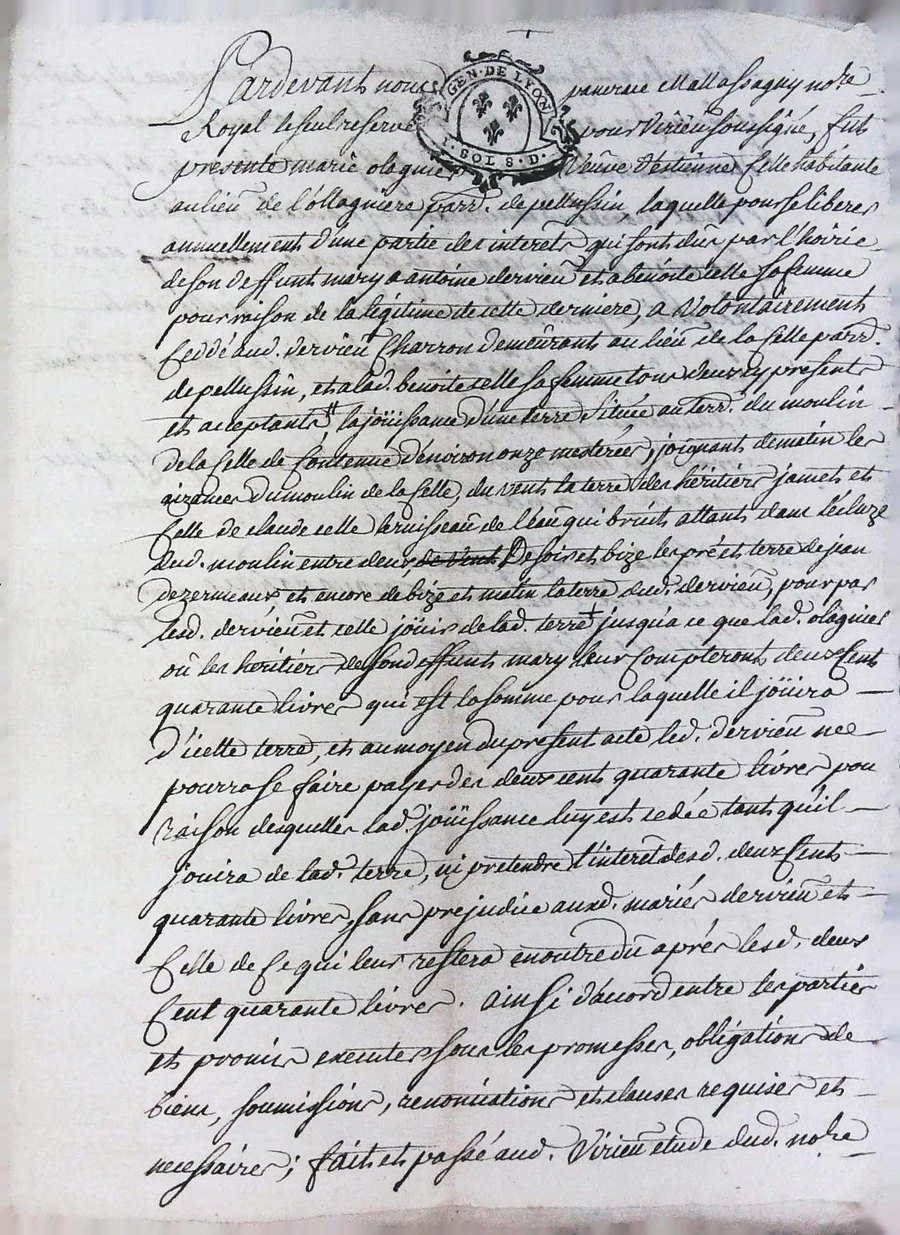 GEN · DE LYON
1 · SOL 8 · D ·
Pardevant nous pancrace Mallassagny no.re
Royal le seul reservé pour Virieu soussigné, fut
presente marie olagnier veuve d'estienne Celle habitante
au lieu de l'ollagniere parr.d de pellussin, laquelle pour se liberer
annuellement d'une partie des interets qui sont dûs par l'hoirie
de son deffunt mary a antoine dervieu et a benoite celle sa femme
pour raison de la légitime de cette derniere, a volontairement
Ceddé aud. dervieu Charron demeurants au lieu de la Celle parr.d
de pellussin, et a lad. benoite celle sa femme tous deux icy presents
et acceptants la joüissance d'une terre située au terr.d du moulin
de la Celle de Contenue d'environ onze mesterées, joignant de matin les
aizances du moulin de la Celle, du vent la terre des héritiers jamet et
Celle de claude celle le ruisseau de l'eau qui bruit attant dans l'écluze
dud. moulin entre deux, de vent De soir et bize les pré et terre de jean
dezermeaux et encore de bize et matin la terre dud. dervieu, pour par
lesd. dervieu et celle joüir de lad. terre + jusqu'a ce que lad. olagnier
où les heritiers de sond. deffunt mary leur Compteront deux Cent
quarante livres qui est la somme pour laquelle il joüira
d'icelle terre, et au moyen du present acte led. dervieu ne
pourra se faire payer des deux cent quarante livres pou
raison desquelles lad. joüissance luy est cedée tant qu'il
jouira de lad. terre, ni pretendre l'interet desd. deux Cents
quarante livres, sans prejudice auxd. mariés dervieu et
Celle de Ce qui leur restera en outre dû aprés lesd. deux
Cent quarante livres. ainsi d'acord entre les parties
et promis executer sous les promesses, obligations de
biens, soumissions, renonciations et clauses requises et
necessaires; fait et passé aud. Virieu etude dud. no.re